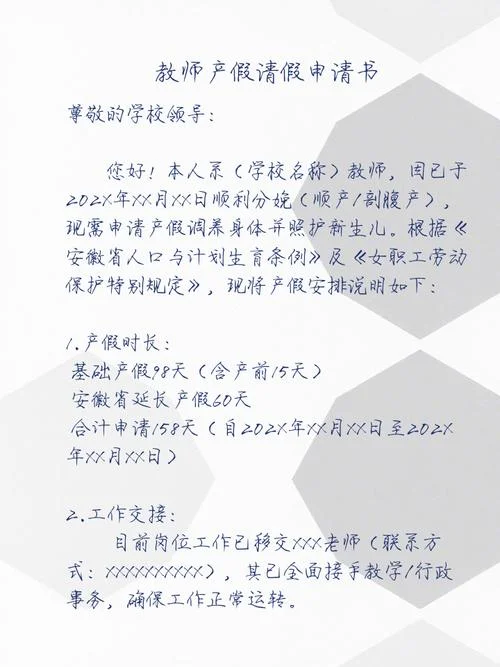 教师产假请假申请书
尊敬的学校领导：
您好！本人系（学校名称）教师，因已于
202X年XX月XX日顺利分娩（顺产/剖腹产），
现需申请产假调养身体并照护新生儿。根据《
安徽省人口与计划生育条例》及《女职工劳动
保护特别规定》，现将产假安排说明如下：
1.产假时长：
基础产假98天（含产前15天）
安徽省延长产假60天
合计申请158天（自202X年XX月XX日至202X
年XX月XX日）
2.工作交接：
目前岗位工作已移交XXX老师（联系方
式：XXXXXXXXXX），其已全面接手教学/行政
事务，确保工作正常运转。